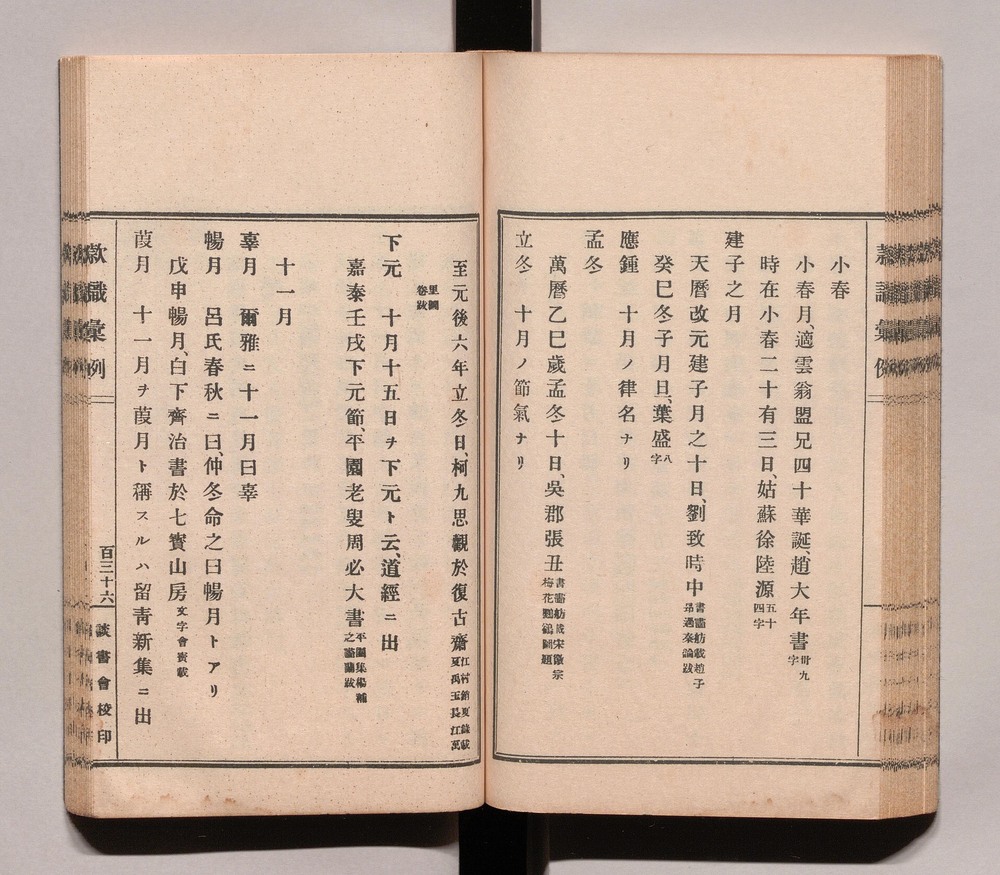 小春
小春月、適雲翁盟兄四十華誕、趙大年書卅九字
時在小春二十有三日、姑蘇徐陸源五十四字
建子之月
天曆改元建子月之十日、劉致時中書畫舫載趙子昂過秦論跋
癸巳冬子月旦、葉盛八字
應鍾　十月ノ律名ナリ
孟冬
萬曆乙巳歲孟冬十日、吳郡張丑書畫舫載宋徽宗梅花鸜鵒圖題
立冬　十月ノ節氣ナリ
至元後六年立冬日、柯九思觀於復古齋江村銷夏錄載夏禹玉長江萬
里圖卷跋
下元　十月十五日ヲ下元ト云、道經ニ出
嘉泰壬戌下元節、平園老叟周必大書平園集楊補之畫蘭跋
十一月
辜月　爾雅ニ十一月曰辜
暢月　呂氏春秋ニ曰、仲冬命之曰暢月トアリ
戊申暢月、白下齊治書於七寶山房文字會寶載
葭月　十一月ヲ葭月ト稱スルハ留靑新集ニ出
款識彙例
百三十六
談書會校印